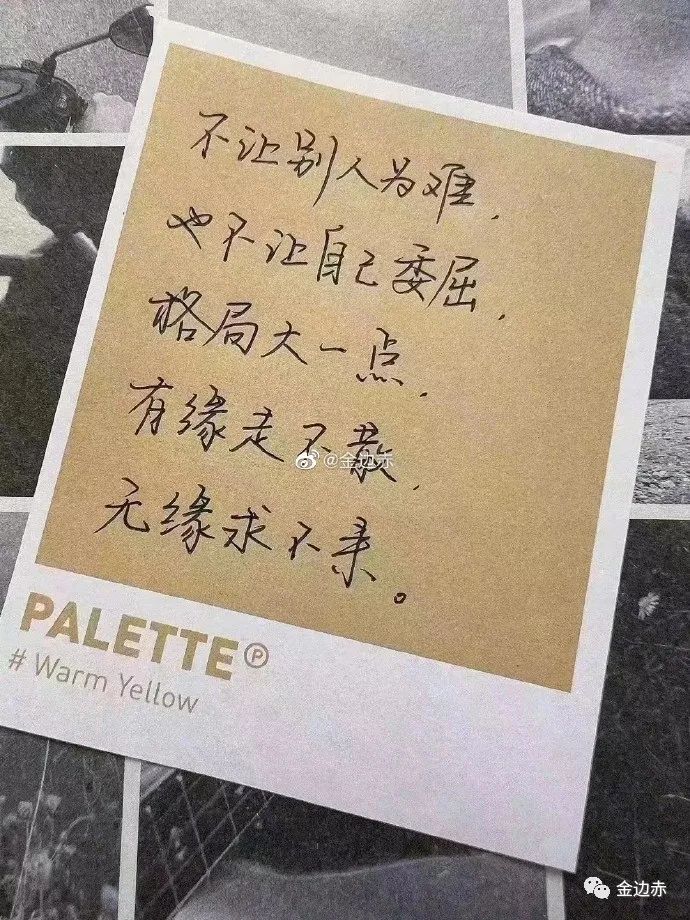 不让别人为难，
也不让自己委屈，
格局大一点，
有缘走不散，
@金边赤
无缘求不来。
PALETTE Ⓟ
# Warm Yellow
金边赤